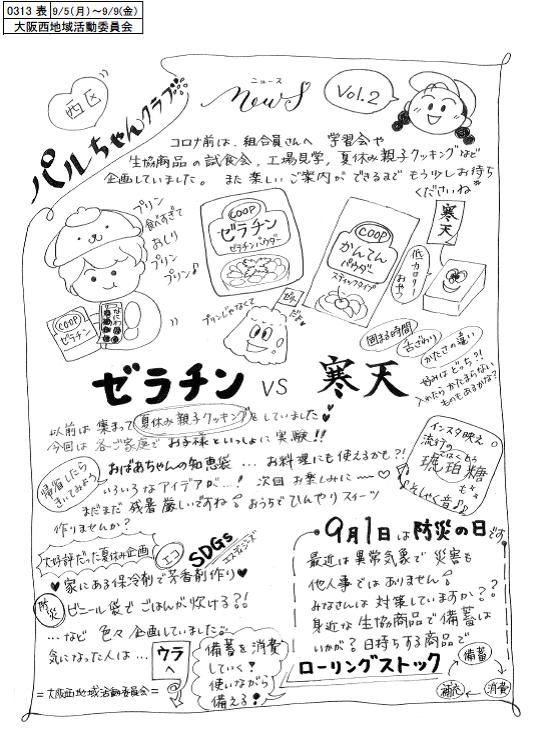 0313 表 9/5(月)～9/9(金)
大阪西地域活動委員会
西区
パルちゃんクラブ
ニュース
NewS
Vol.2
コロナ前は、組合員さんへ 学習会や
生協商品の試食会、工場見学、夏休み親子クッキングなど
企画していました。また楽しいご案内ができるまでもう少しお待ち
くださいね
プリン
食べすぎて
おしり
プリン
プリン♪
COOP
ゼラチン
COOP
ゼラチン
ゼラチンパウダー
COOP
かんてん
パウダー
スティックタイプ
寒天
低カロリー
おやつ
プリンじゃなくて
だョ
固まる時間
舌ざわり
かたさの違い
好みはどっち?!
入れたらかたまらない
ものもあるかな?
ゼラチン VS 寒天
以前は 集まって 夏休み親子クッキング をしていました♥
今回は 各ご家庭で お子様といっしょに 実験!!
帰省したら
きいてみよう
おばあちゃんの知恵袋 … お料理にも使えるかも?!
いろいろなアイデアが…! 次回 お楽しみに〜♡
まだまだ 残暑 厳しいですね! おうちで ひんやりスイーツ
作りませんか?
インスタ映え
流行の
こはくとう
琥珀糖
もね
♪そしゃく音♪
大好評だった夏休み企画
エコ
SDGs
エスディジーズ
♥家にある保冷剤で芳香剤作り♥
防災
ビニール袋で ごはんが 炊ける?!
…など 色々 企画していました。
気になった人は… ウラへ
=大阪西地域活動委員会=
9月1日は防災の日です
最近は 異常気象で 災害も
他人事では ありません!
みなさんは 対策していますか??
身近な 生協商品で 備蓄は
いかが? 日持ちする商品で
ローリングストック
備蓄を消費
していく!
使いながら
備える!
備蓄
消費
補充